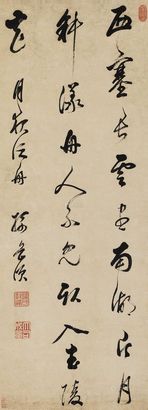 西塞長雲盡南湖片月
斜漾舟人不見臥入武陵
花 月夜泛舟 孫岳頒